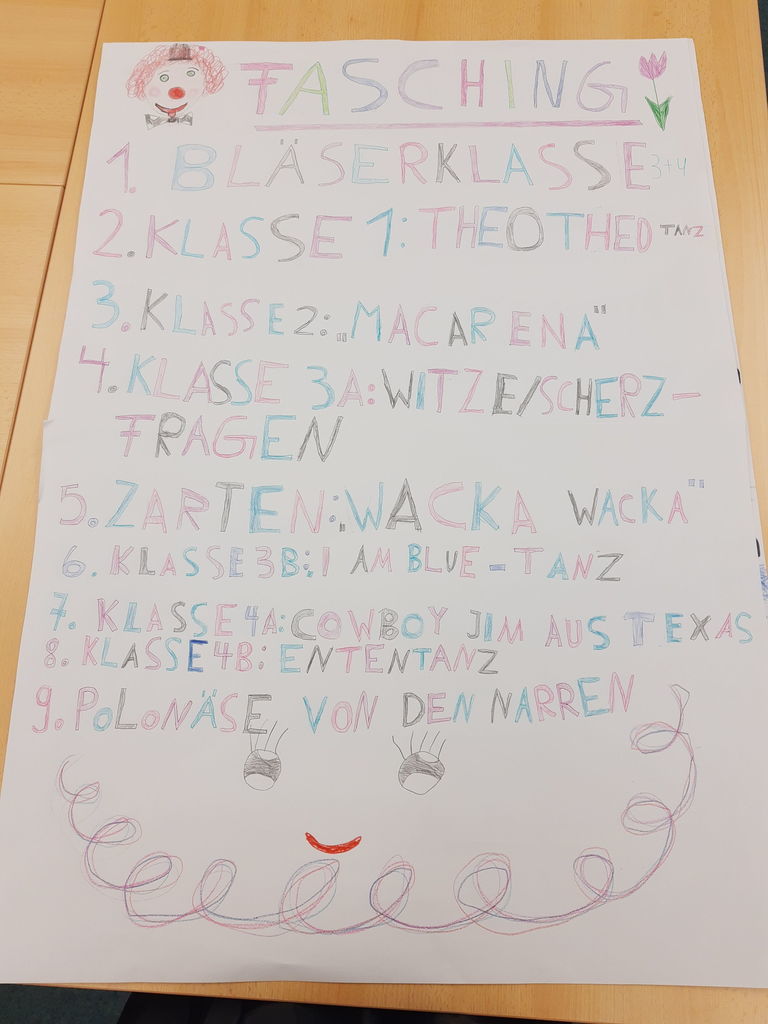 FASCHING
1. BLÄSERKLASSE 3+4
2. KLASSE 1: THEOTHEO TANZ
3. KLASSE 2: „MACARENA"
4. KLASSE 3A: WITZE/SCHERZ-
FRAGEN
5. ZARTEN: „WACKA WACKA"
6. KLASSE 3B: I AM BLUE-TANZ
7. KLASSE 4A: COWBOY JIM AUS TEXAS
8. KLASSE 4B: ENTENTANZ
9. POLONÄSE VON DEN NARREN